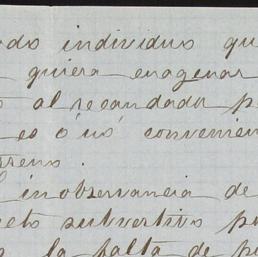 odo individuo qu
quiera enagenar
al recaudador p
es ó nó convenien
rreno.
inobservancia de
eto subvertito po
la falta de p